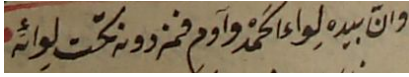 وانّ بيده لواء الحمد وآدم فمن دونه تحت لوائه